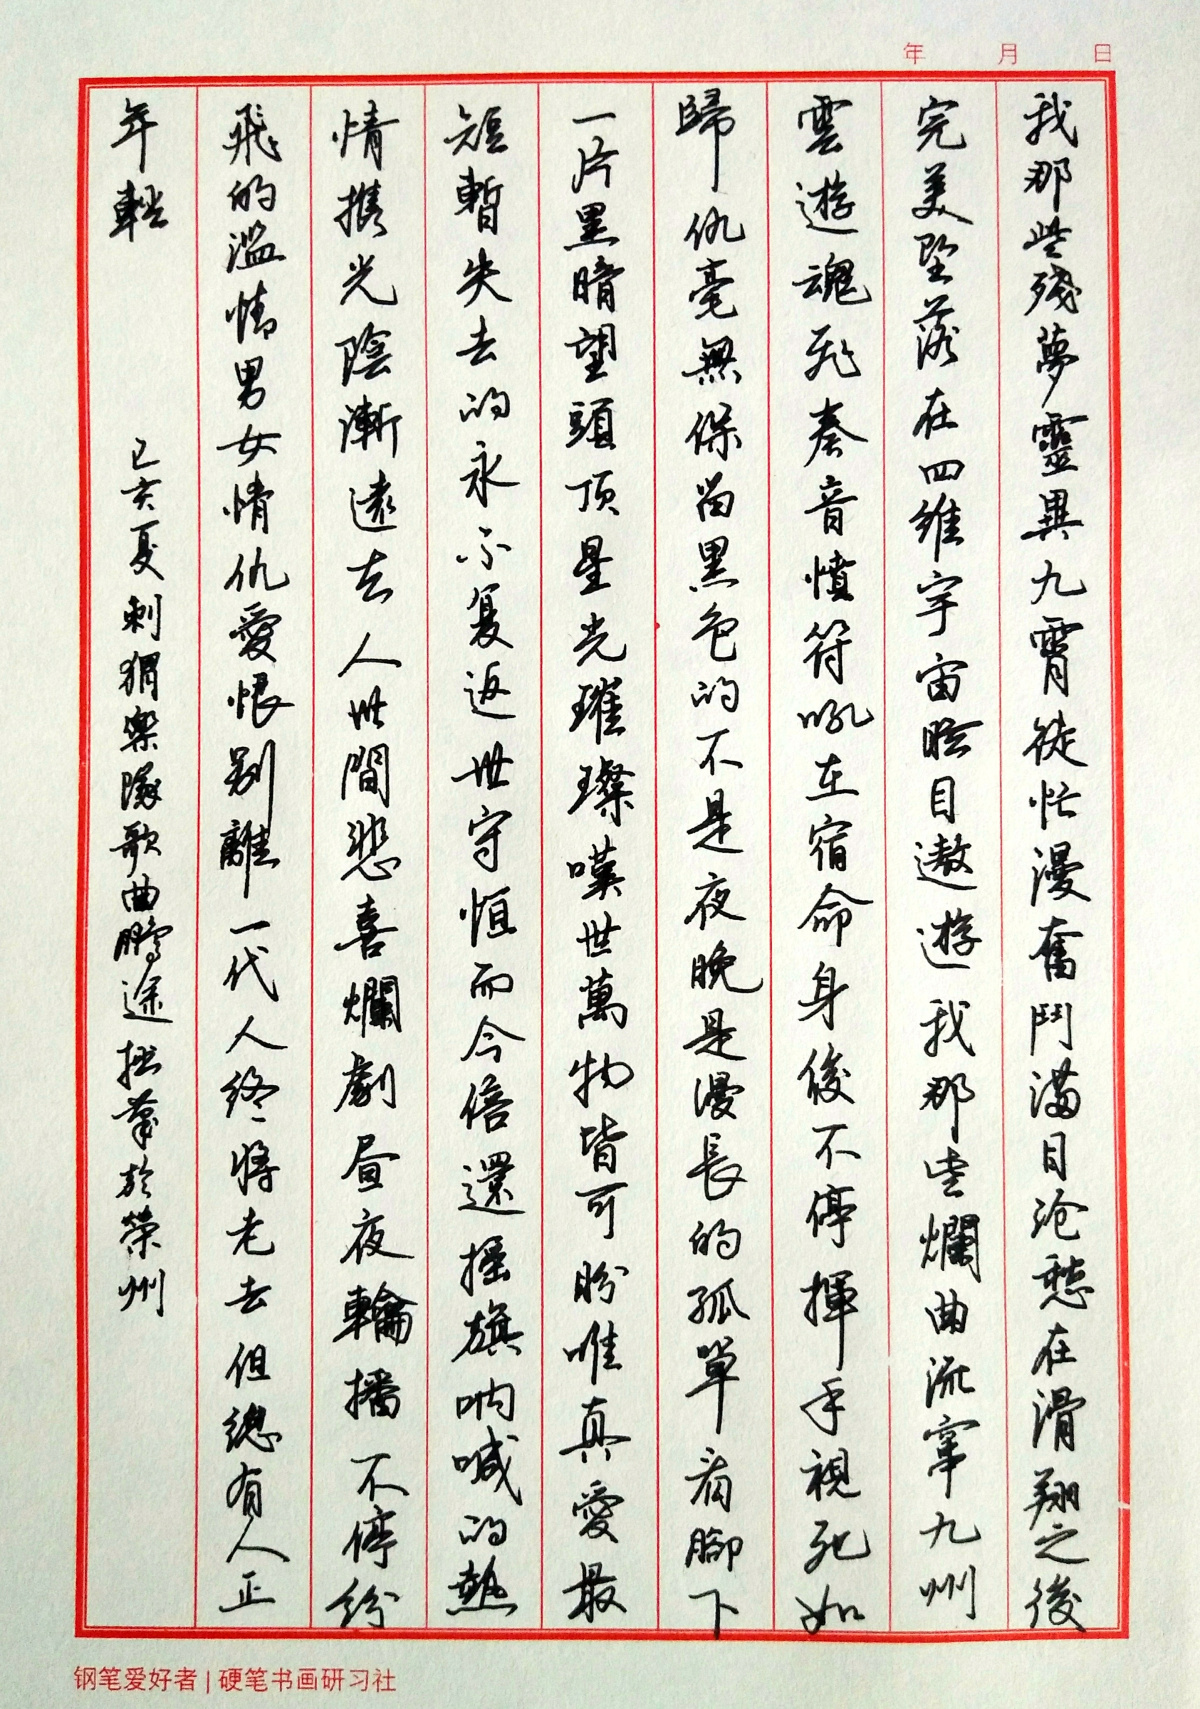 年 月 日
我那些殘夢靈異九霄徒忙漫奮鬥滿目沧愁在滑翔之後
完美墜落在四維宇宙瞼目遨遊我那些爛曲流窜九州
雲遊魂飛奏音憤符吼在宿命身後不停揮手視死如
歸仇毫無保留黑色的不是夜晚是漫長的孤單看腳下
一片黑暗望頭頂星光璀璨嘆世萬物皆可盼唯真愛最
短暫失去的永不复返世守恒而今倍還搖旗呐喊的熱
情攜光陰漸遠去人世間悲喜爛劇昼夜輪播不停紛
飛的滥情男女情仇愛恨别離一代人終將老去但總有人正
年輕
己亥夏刺猬樂隊歌曲鵬途拙筆於榮州
钢笔爱好者 | 硬笔书画研习社